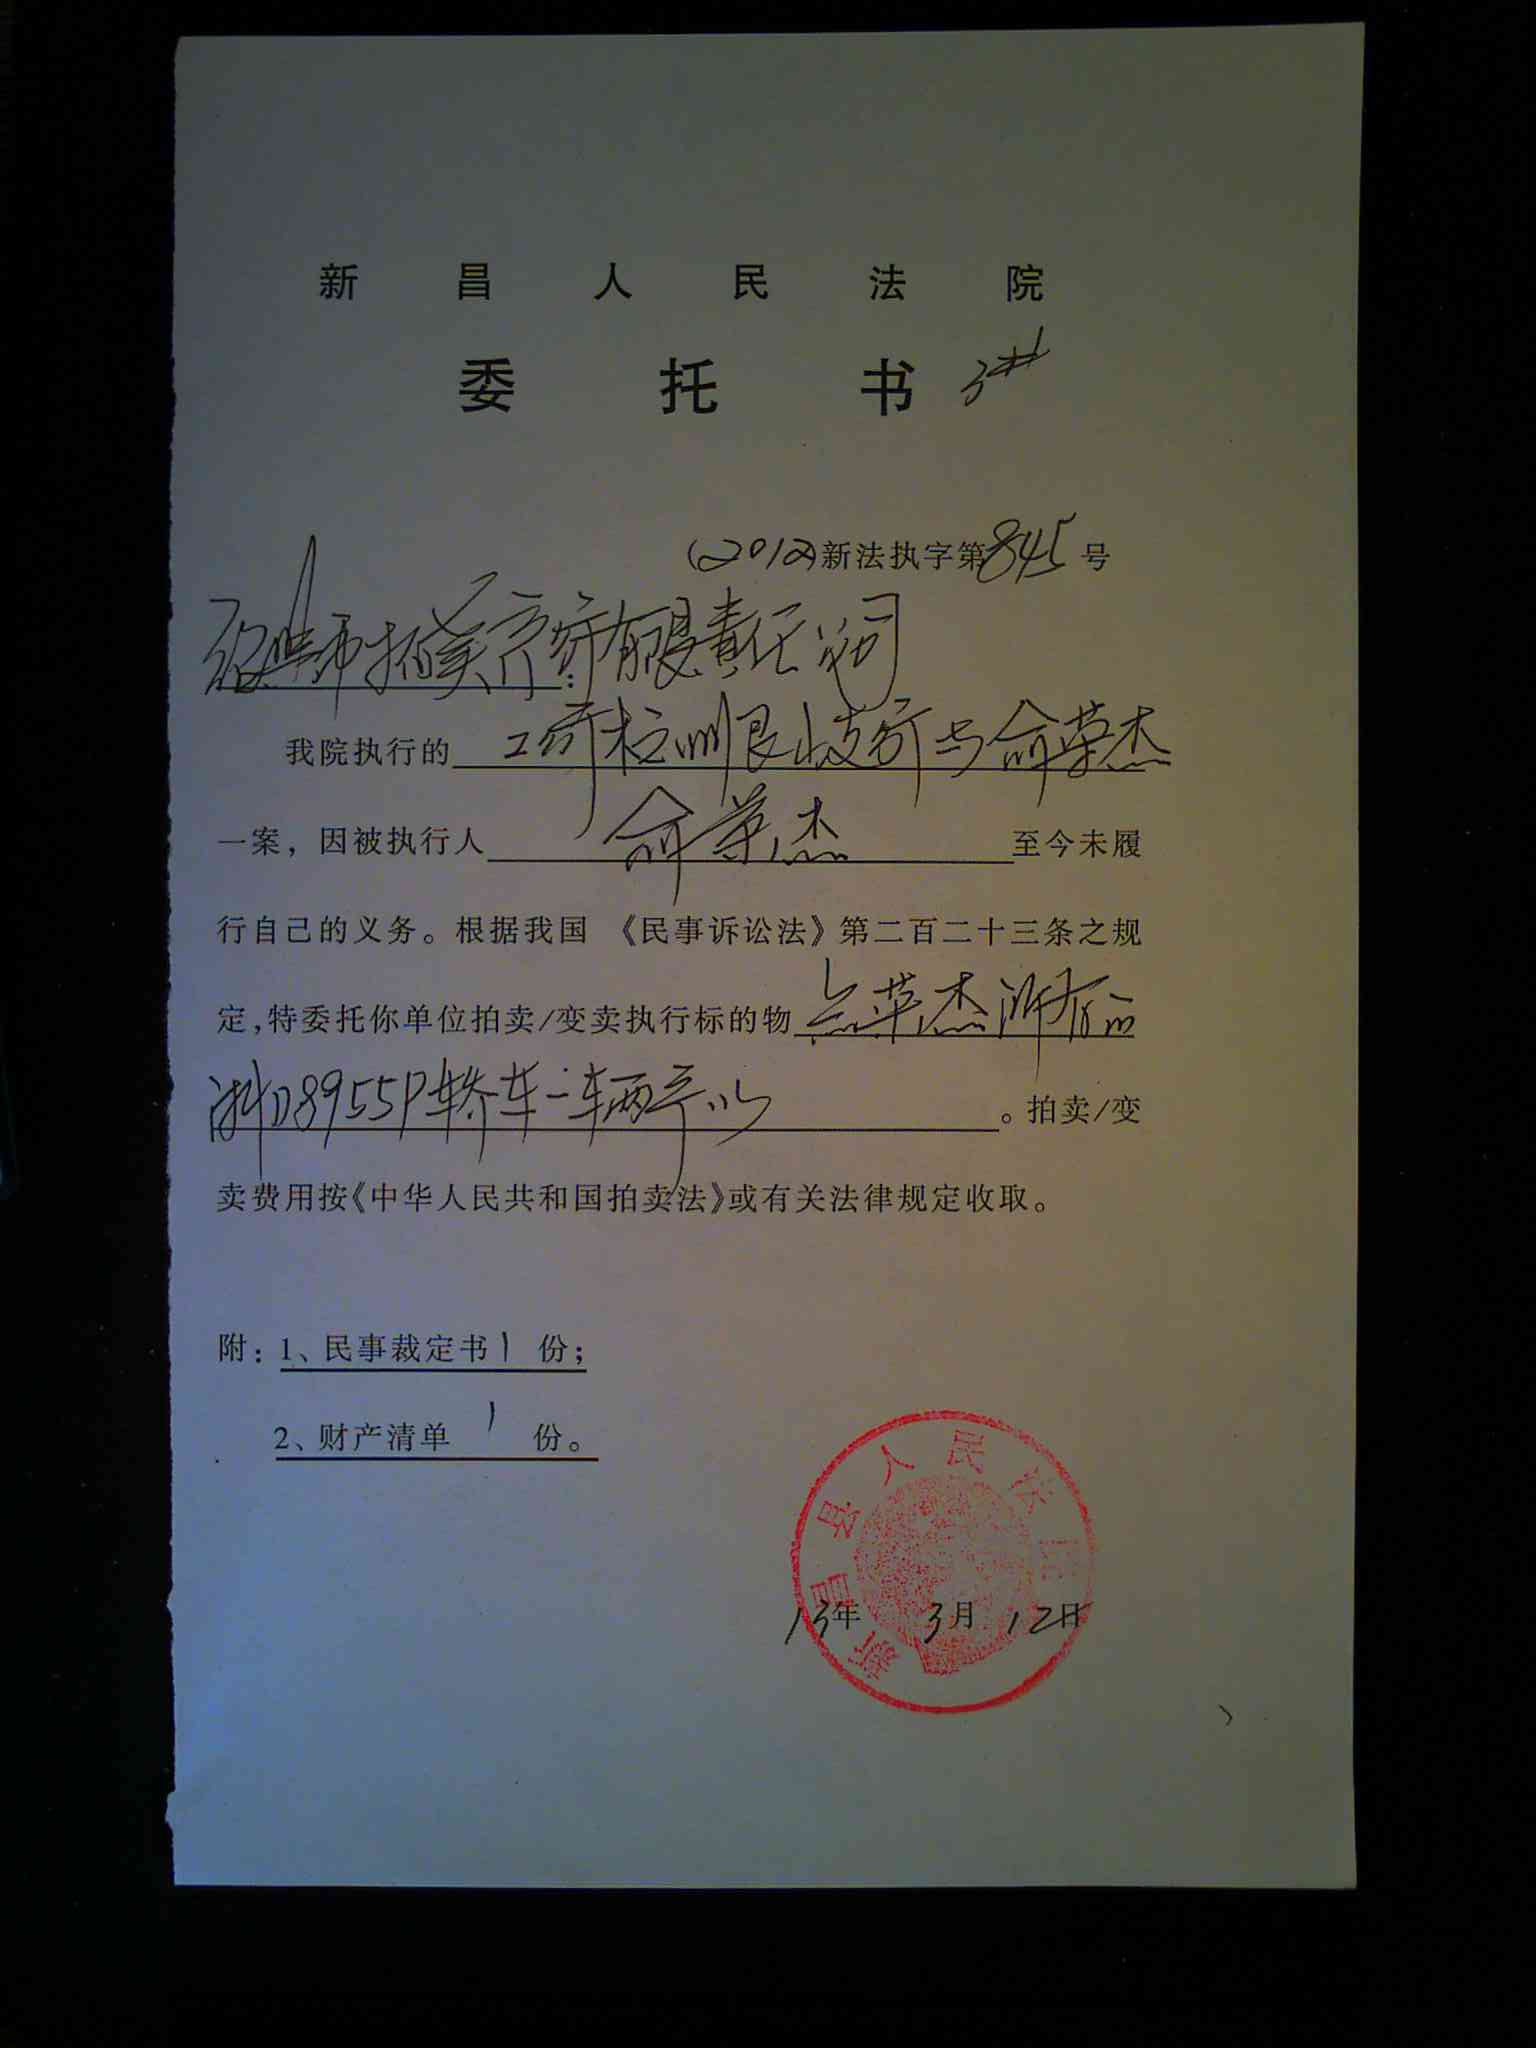 新昌人民法院
委托书 3#
(2012)新法执字第845号
绍兴市拍卖行有限责任公司:
我院执行的 工行杭州艮山支行与俞荣杰
一案，因被执行人 俞荣杰 至今未履
行自己的义务。根据我国《民事诉讼法》第二百二十三条之规
定,特委托你单位拍卖/变卖执行标的物 俞荣杰所有的
浙D8955P轿车一辆予以 。拍卖/变
卖费用按《中华人民共和国拍卖法》或有关法律规定收取。
附：1、民事裁定书1份；
2、财产清单 1 份。
新昌县人民法院
13年 3月 12日